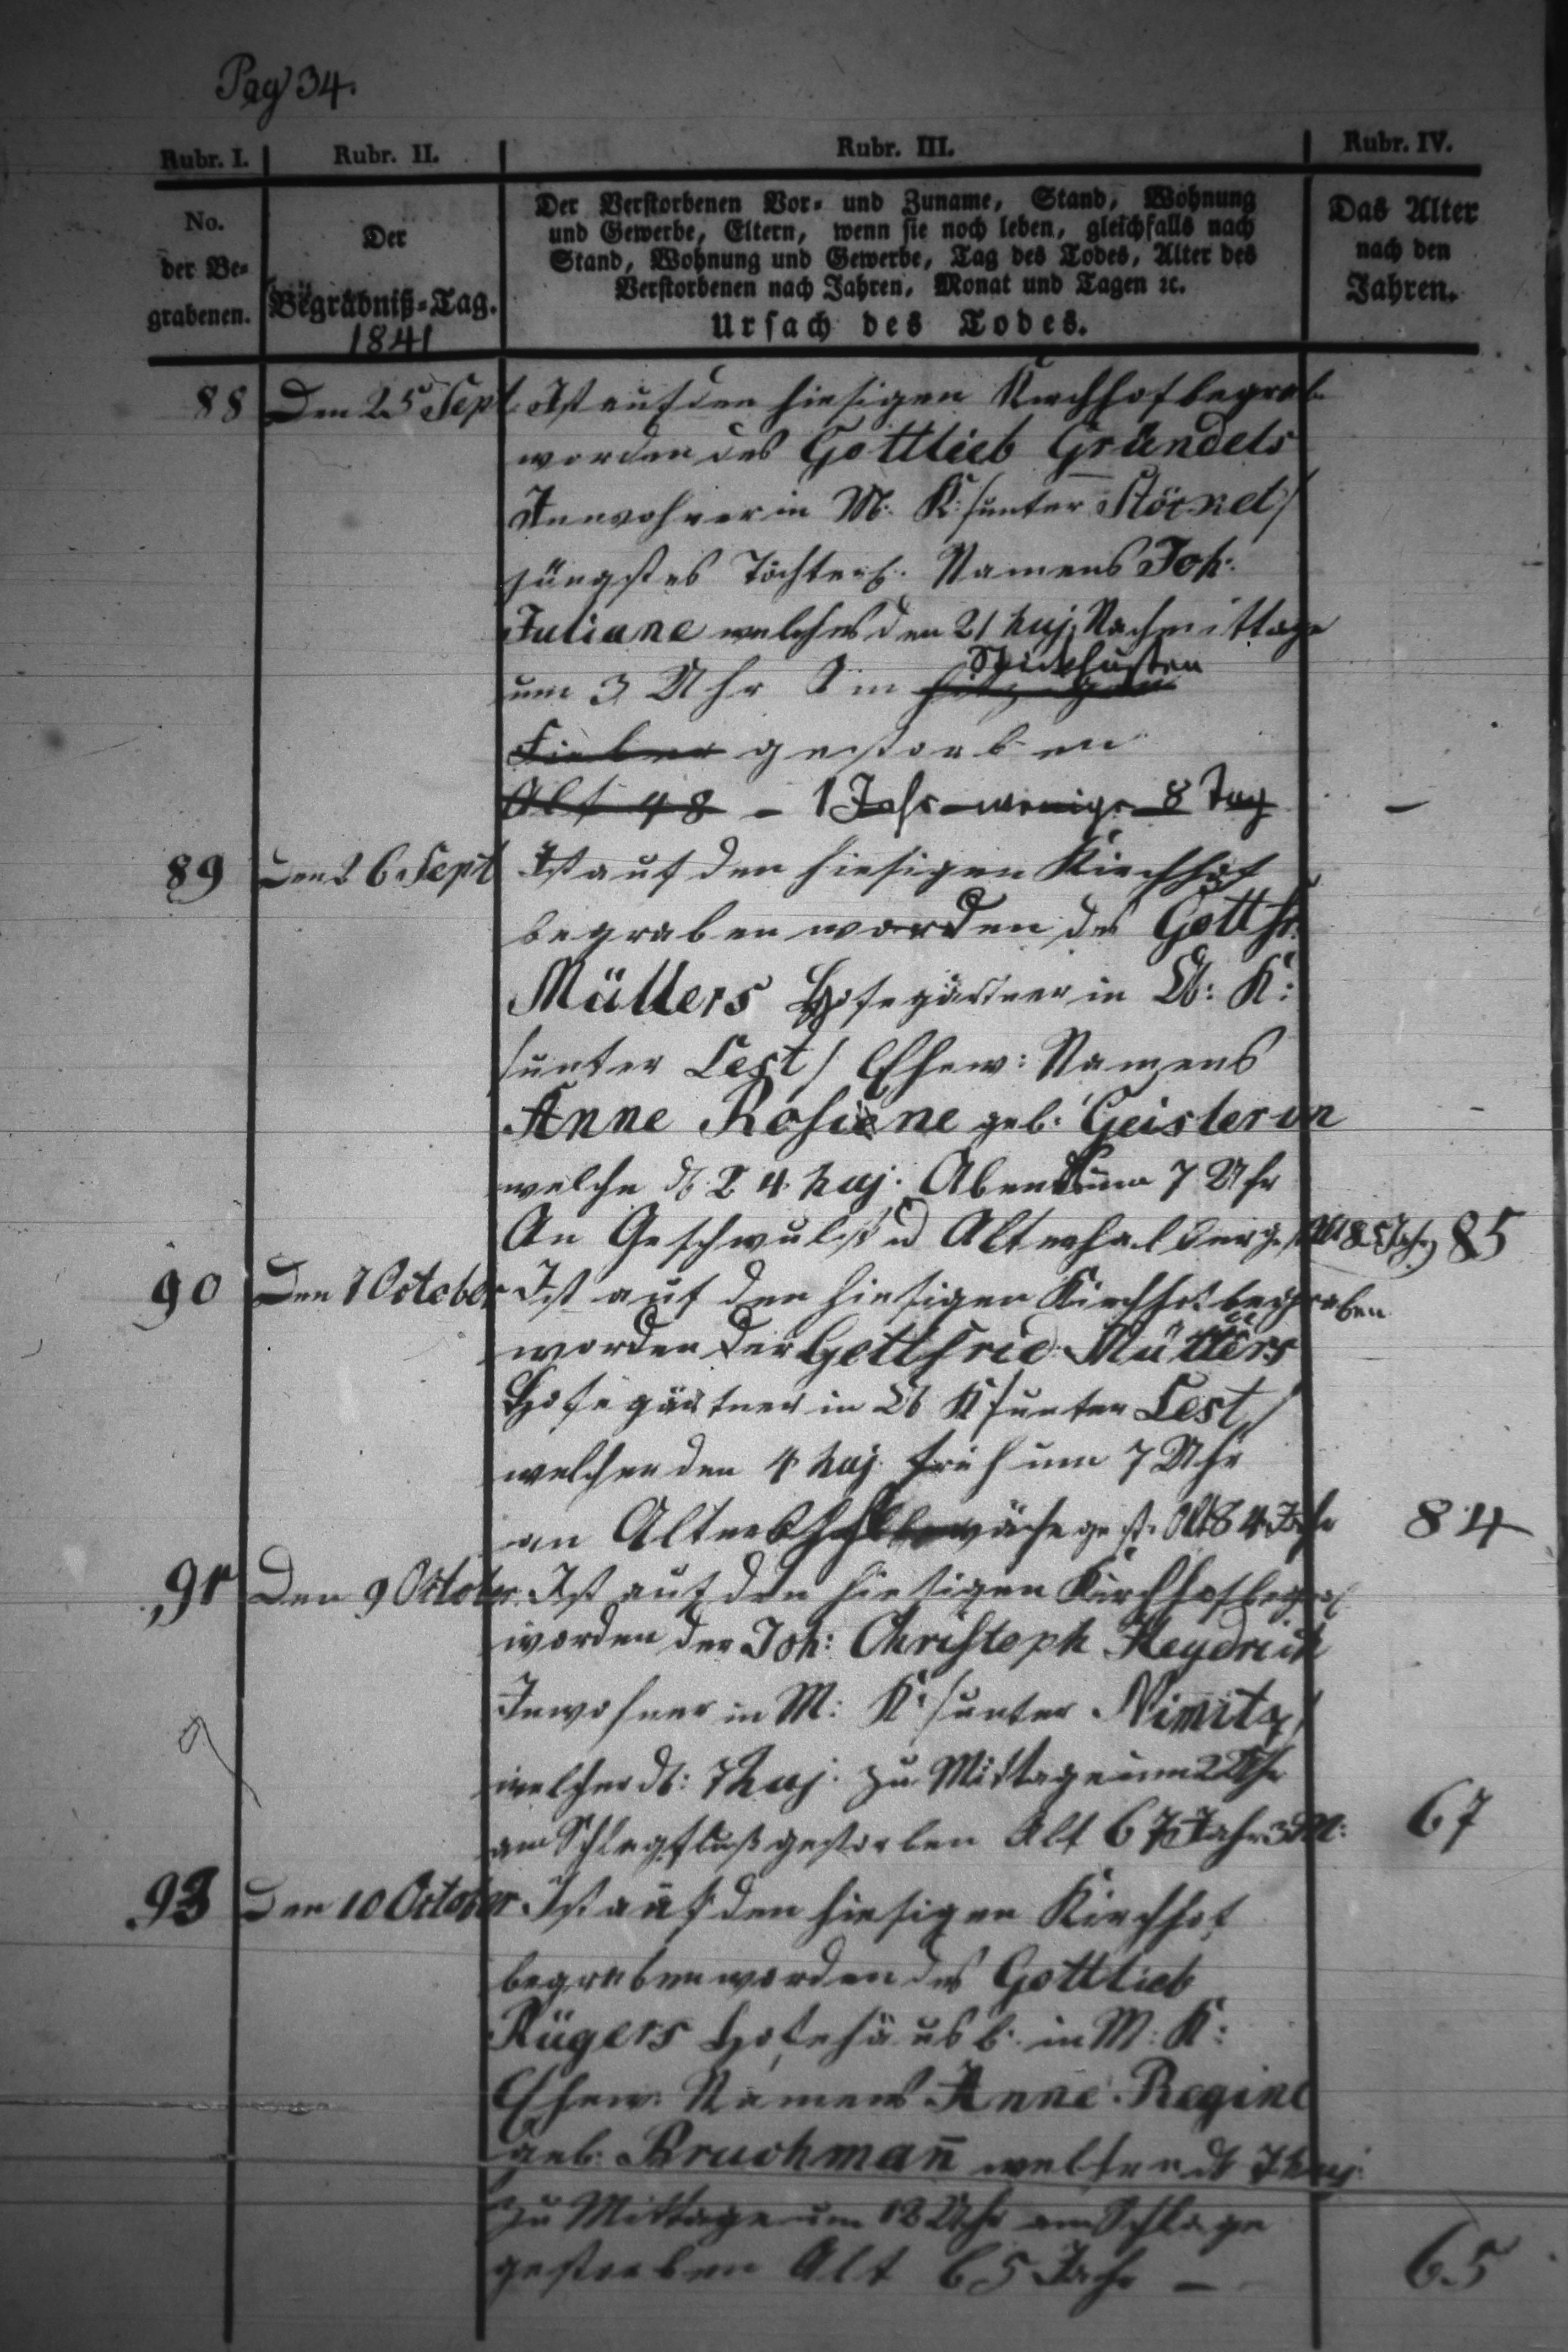 Pag 34.
Rubr. I. Rubr. II. Rubr. III. Rubr. IV.
No.
der Be-
grabenen.
Der
Begräbniß-Tag.
1841
Der Verstorbenen Vor- und Zuname, Stand, Wohnung
und Gewerbe, Eltern, wenn sie noch leben, gleichfalls nach
Stand, Wohnung und Gewerbe, Tag des Todes, Alter des
Verstorbenen nach Jahren, Monat und Tagen ꝛc.
Ursach des Todes.
Das Alter
nach den
Jahren.
88 Den 25 Sept Ist auf den hiesigen Kirchhof begrab
worden des Gottlieb Gründels
Inwohner in M: K: /unter Stöckel/
jüngstes Töchterl. Namens Joh:
Juliane welches den 21 huj. Nachmittage
um 3 Uhr Stickhusten
Fieber gestorben
Alt 48 – 1 Jahr wenige 8 Tag –
89 Den 26 Sept Ist auf den hiesigen Kirchhof
begraben worden des Gottfr.
Müllers Hofegärtner in Ob: K:
/unter Lest/ Ehew: Namens
Anne Rosine geb: Geislerin
welche d. 24 huj. Abends um 7 Uhr
An Geschwulst u Altershalber gest. Alt 85 Jahr 85
90 Den 7 October Ist auf den hiesigen Kirchhof begraben
worden der Gottfried Müllers
Hofegärtner in Ob K /unter Lest/
welcher den 4 huj. früh um 7 Uhr
an Altersschwäche gest. Alt 84 Jahr 84
91 Den 9 October Ist auf den hiesigen Kirchhof begrab
worden der Joh: Christoph Heydrich
Inwohner in M: K: /unter Nimitz/
welcher d: 7 huj. zu Mittage um 2 Uhr
am Schlagfluß gestorben Alt 67 Jahr 3 M: 67
93 Den 10 October Ist auf den hiesigen Kirchhof
begraben worden des Gottlieb
Rügers Hofehäusl. in M: K:
Ehew. Namens Anne Regine
geb. Bruchmañ welche d 7 huj.
zu Mittage um 12 Uhr am Schlage
gestorben Alt 65 Jahr – 65